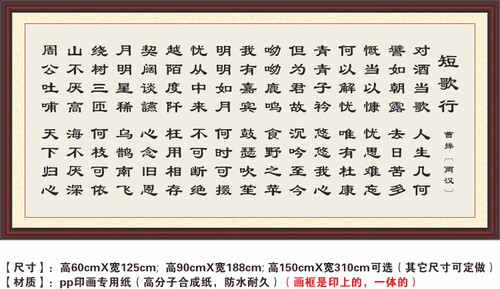 短歌行
曹操〔两汉〕
对酒当歌 人生几何
譬如朝露 去日苦多
慨当以慷 忧思难忘
何以解忧 唯有杜康
青青子衿 悠悠我心
但为君故 沉吟至今
呦呦鹿鸣 食野之苹
我有嘉宾 鼓瑟吹笙
明明如月 何时可掇
忧从中来 不可断绝
越陌度阡 枉用相存
契阔谈讌 心念旧恩
月明星稀 乌鹊南飞
绕树三匝 何枝可依
山不厌高 海不厌深
周公吐哺 天下归心
【尺寸】:高60cmX宽125cm; 高90cmX宽188cm;高150cmX宽310cm可选(其它尺寸可定做)
【材质】:pp印画专用纸(高分子合成纸,防水耐久)(画框是印上的,一体的)